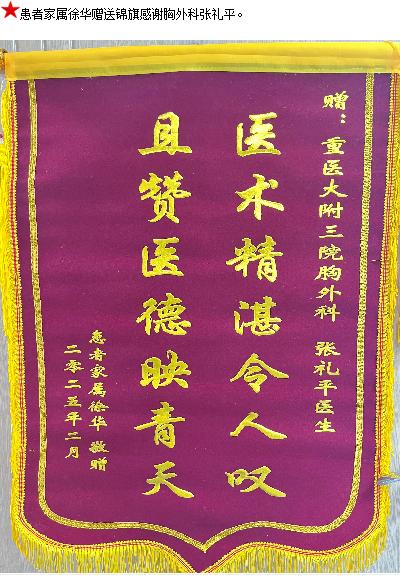 患者家属徐华赠送锦旗感谢胸外科张礼平。
赠：重医大附三院胸外科 张礼平医生
医术精湛令人叹
且赞医德映青天
患者家属徐华 敬赠
二零二五年二月